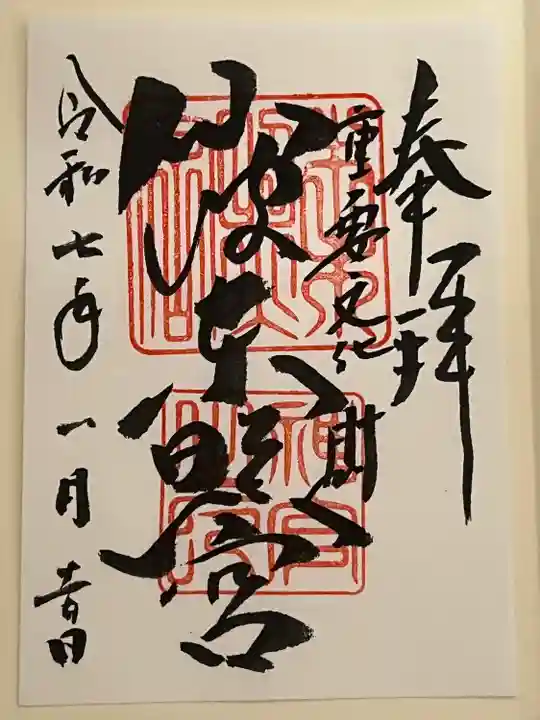 奉拝
重要文化財
仙波東照宮
令和七年一月吉日